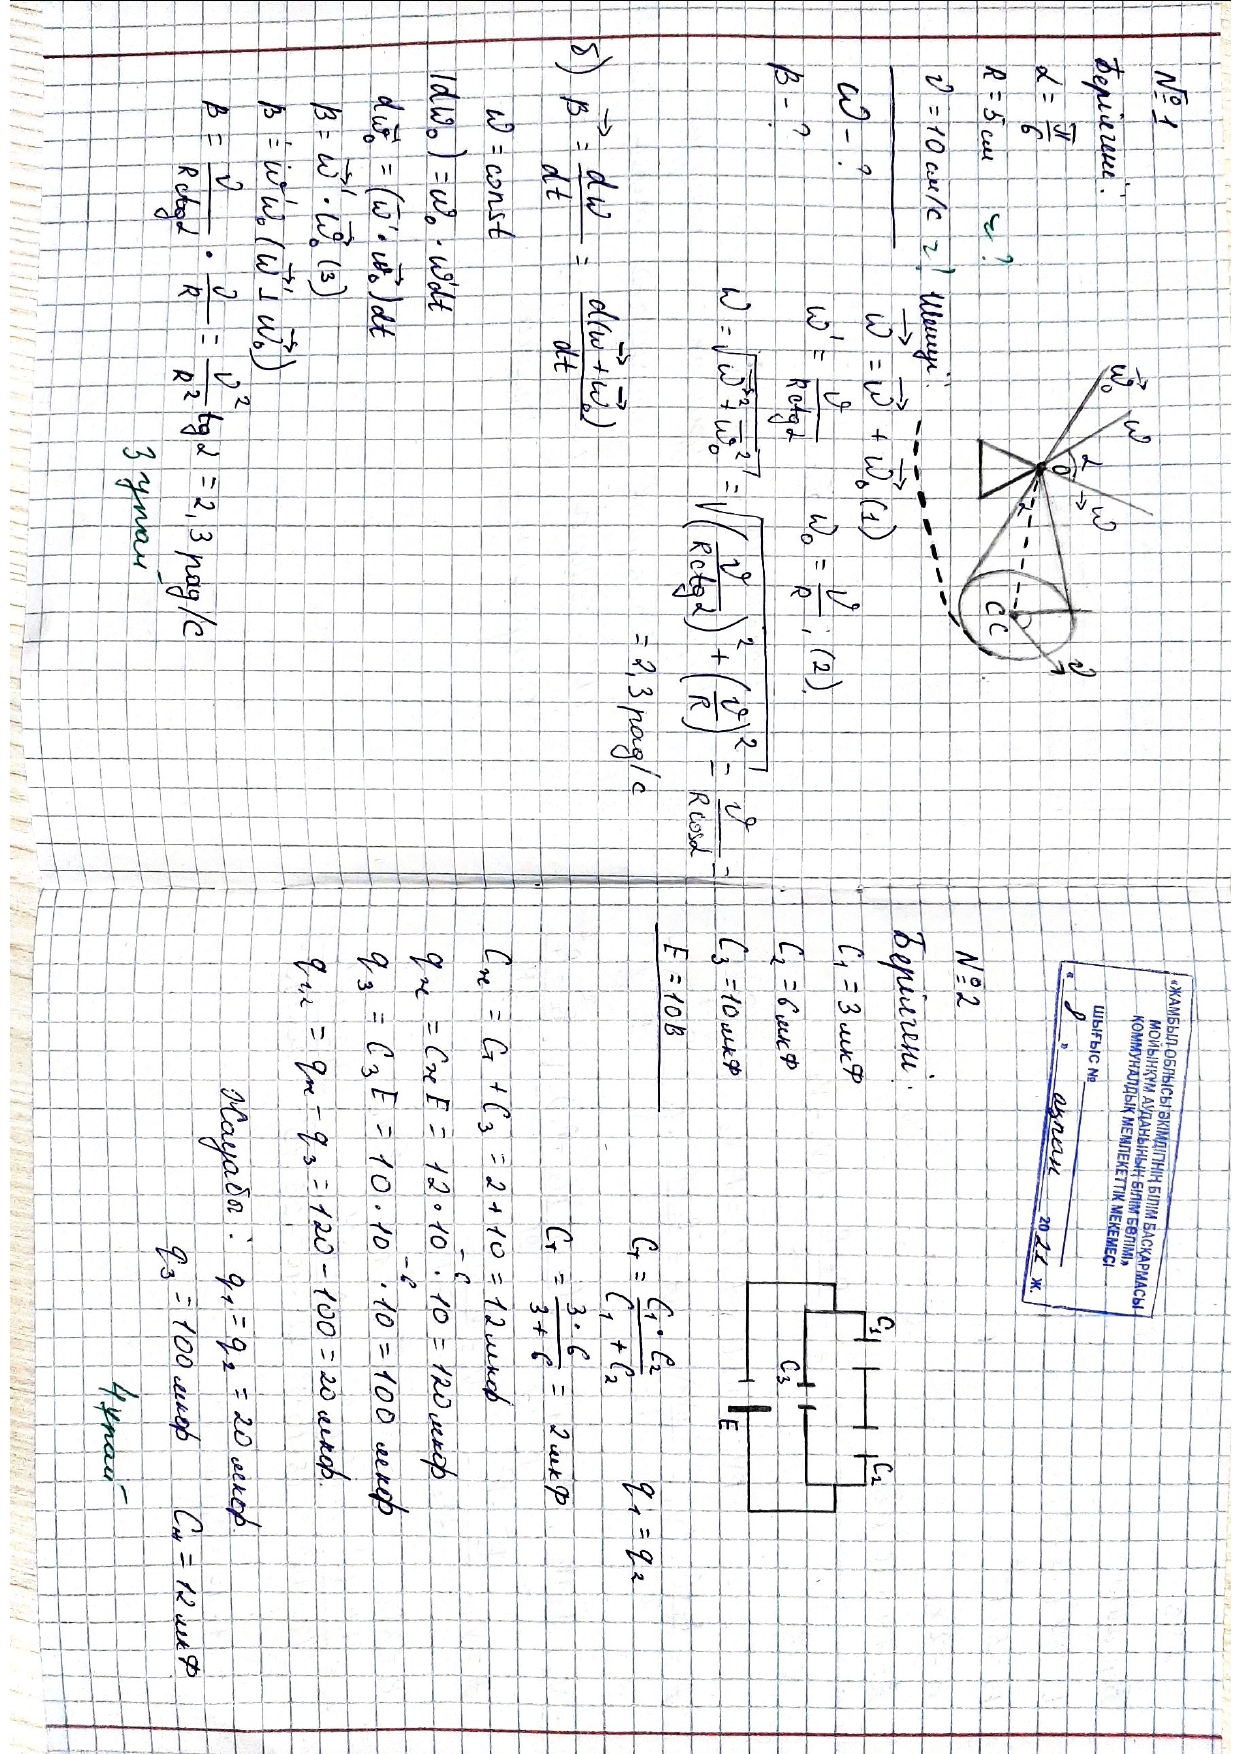 №1
Берілгені:
α = π/6
R = 5 см
ν = 10 см/с
ω - ?
β - ?
Шешуі:
ω₀
ω
α
O
ω
α
C C
ν
ω⃗ = ω⃗ + ω⃗₀ (1)
ω' = ν/(R ctg α) ω₀ = ν/R ; (2)
ω = √(ω⃗² + ω₀²) = √((ν/(R ctg α))² + (ν/R)²) = ν/(R cos α) =
= 2,3 рад/с
б) β⃗ = dω/dt = d(ω⃗ + ω⃗₀)/dt
ω = const
|dω₀) = ω₀ · ω'dt
dω⃗₀ = (ω⃗' · ω⃗₀) dt
β = ω⃗' · ω⃗₀ (3)
β = ω'ω₀ (ω⃗' ⊥ ω⃗₀)
β = ν/(R ctg α) · ν/R = ν²/R² tg α = 2,3 рад/с
3 ұпай
«ЖАМБЫЛ ОБЛЫСЫ ӘКІМДІГІНІҢ БІЛІМ БАСҚАРМАСЫ
МОЙЫНҚҰМ АУДАНЫНЫҢ БІЛІМ БӨЛІМІ»
КОММУНАЛДЫҚ МЕМЛЕКЕТТІК МЕКЕМЕСІ
ШЫҒЫС №
« 8 » ақпан 20 22 ж.
№2
Берілгені:
C₁ = 3 мкФ
C₂ = 6 мкФ
C₃ = 10 мкФ
E = 10 В
C₁
C₂
C₃
E
Cт = C₁·C₂/(C₁ + C₂) q₁ = q₂
Cт = 3·6/(3+6) = 2 мкФ
Cж = Cт + C₃ = 2 + 10 = 12 мкФ
qж = CжE = 12·10⁻⁶·10 = 120 мкФ
q₃ = C₃E = 10·10⁻⁶·10 = 100 мкФ
q₁,₂ = qж - q₃ = 120 - 100 = 20 мкФ.
Жауабы: q₁ = q₂ = 20 мкФ.
q₃ = 100 мкФ Cж = 12 мкФ
4 ұпай